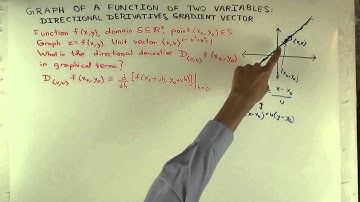 GRAPH OF A FUNCTION OF TWO VARIABLES:
DIRECTIONAL DERIVATIVES, GRADIENT VECTOR
Function f(x,y), domain S⊆ℝ², point (x₀,y₀)∈S.
Graph z=f(x,y). Unit vector ⟨u,v⟩. (u²+v²=1)
What is the directional derivative D⟨u,v⟩ f(x₀,y₀)
in graphical terms?
D⟨u,v⟩ f(x₀,y₀) = d/dh [f(x₀+uh, y₀+vh)]|h=0
(x₀,y₀)
x-x₀
u
(x-x₀) = u(y-y₀)